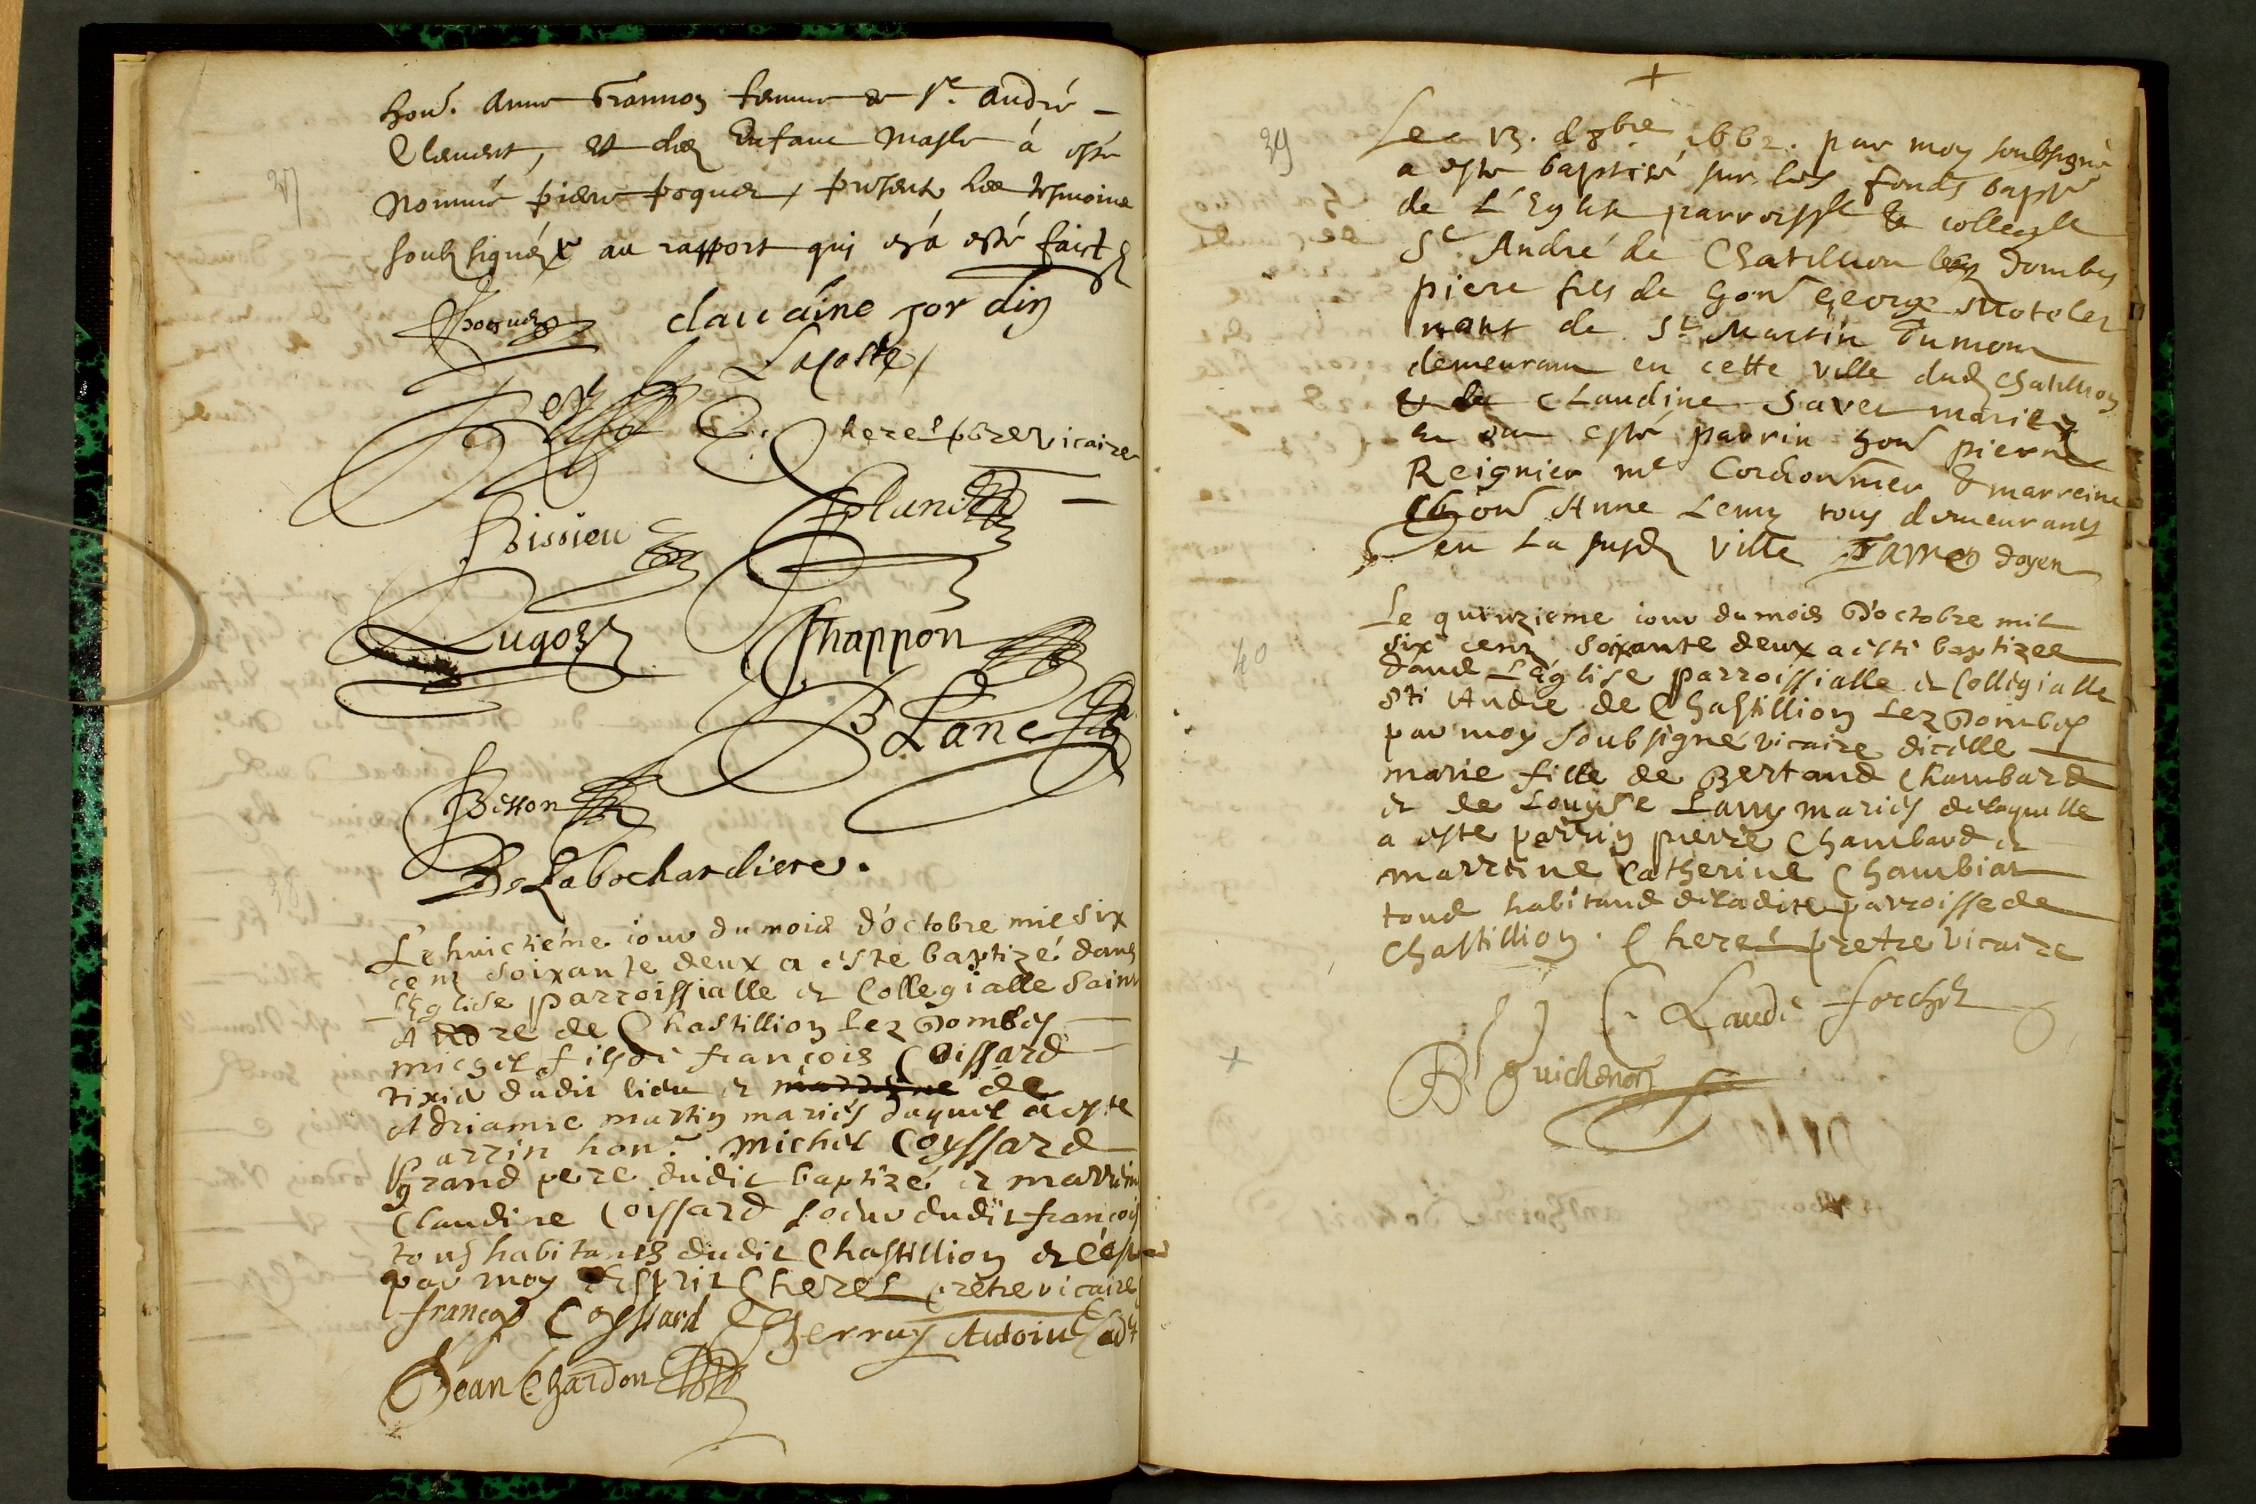 hon.ͤ Anne femme de Sr. André
Clement, et led. Enfant Masle à esté
37
Nommé pierre poquet, présents les tesmoins
soubsignéz au rapport qui en a esté faict
poquet claudine jordin
Lacoste
Cheret pbre vicaire
Bissieu
Chappon
BLanc
Besson
De Labochardiere.
38
Le huictiéme iour du mois d'octobre mil six
cent soixante deux a esté baptizé dans
l'Eglise parroissialle et Collegialle Saint
Andre de Chastillion Lez Dombes
michel fils de françois Coissard
tixier dudit lieu et marrine de
Adrianne martin mariés duquel a este
parrin hon.ͤ michel Coyssard
grand pere dudit baptizé et marrine
Claudine Coissard soeur dudit françois
tous habitants dudit Chastillion et
par moy Esprit Cheret pretre vicaire
françois Coyssard Antoine
Jean Chardon
+
39
Le 13. d 8bre 1662. par moy soubsigné
a este baptisé sur les fonds bapse
de L'Eglise parroissle & collegle
St André de Chatillion les Dombes
piere fils de honr George
natif de St Martin Dumont
demeurant en cette ville dud Chatillion
& de Claudine Savet mariez
et ont esté parrin honr pierre
Reignier me Cordonnier & marreine
honr Anne Lemy tous demeurants
en La susd ville doyen
40
Le quinzieme iour du mois D'octobre mil
six cent soixante deux a esté baptizee
dans L'église parroissialle et Collegialle
sti André de Chastillion Lez Dombes
par moy soubsigné vicaire dicelle
marie fille de Bertand Chambard
et de Louyse Lamy mariés delaquelle
a este parrin pierre Chambard et
marrine Catherine Chambiar
tous habitans deladite parroisse de
Chastillion. Cheret pretre vicaire
Claude
+
B guichenon